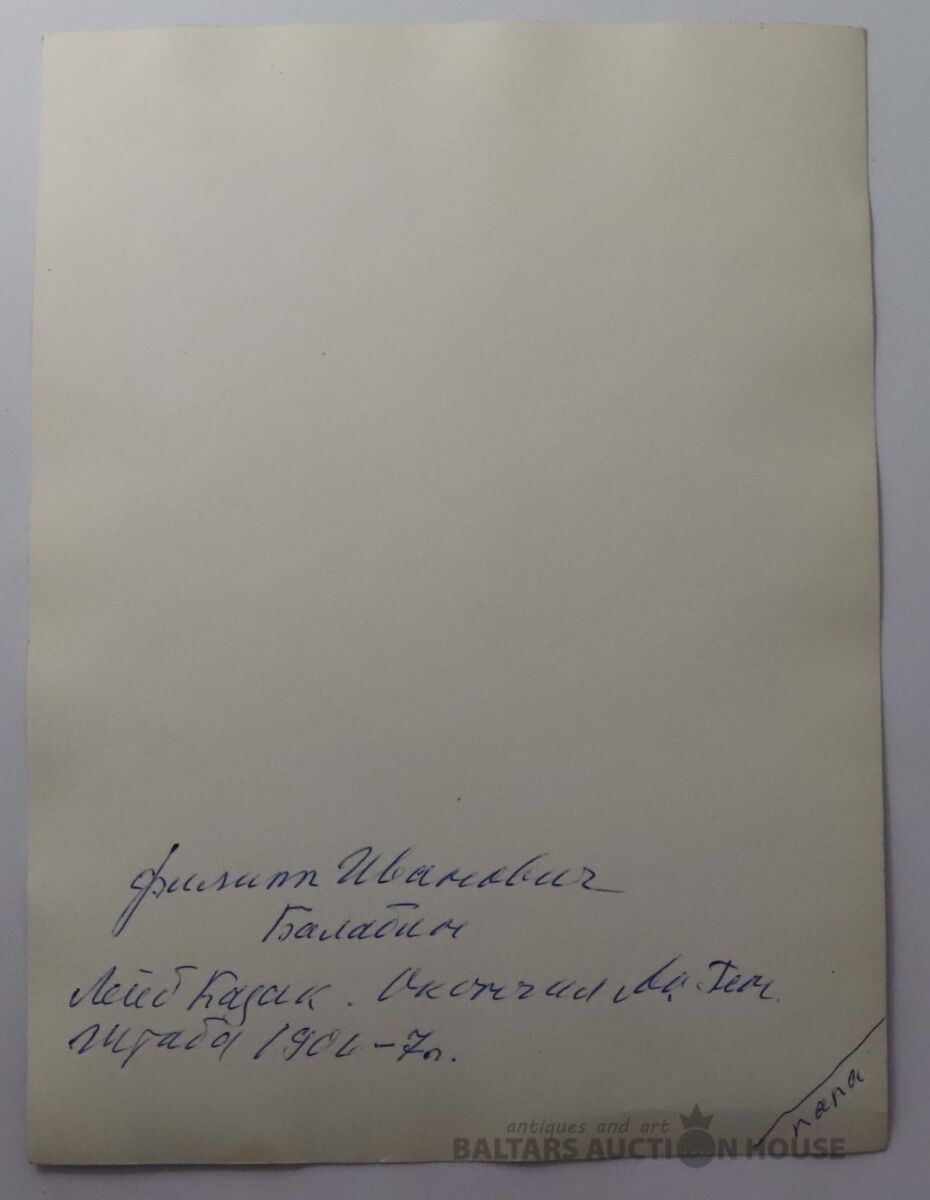 Филипп Иванович
Балабин
Лейб Казак. Окончил Ак. Ген.
Штаба 1906-7г.
папа
antiques and art
BALTARS AUCTION HOUSE